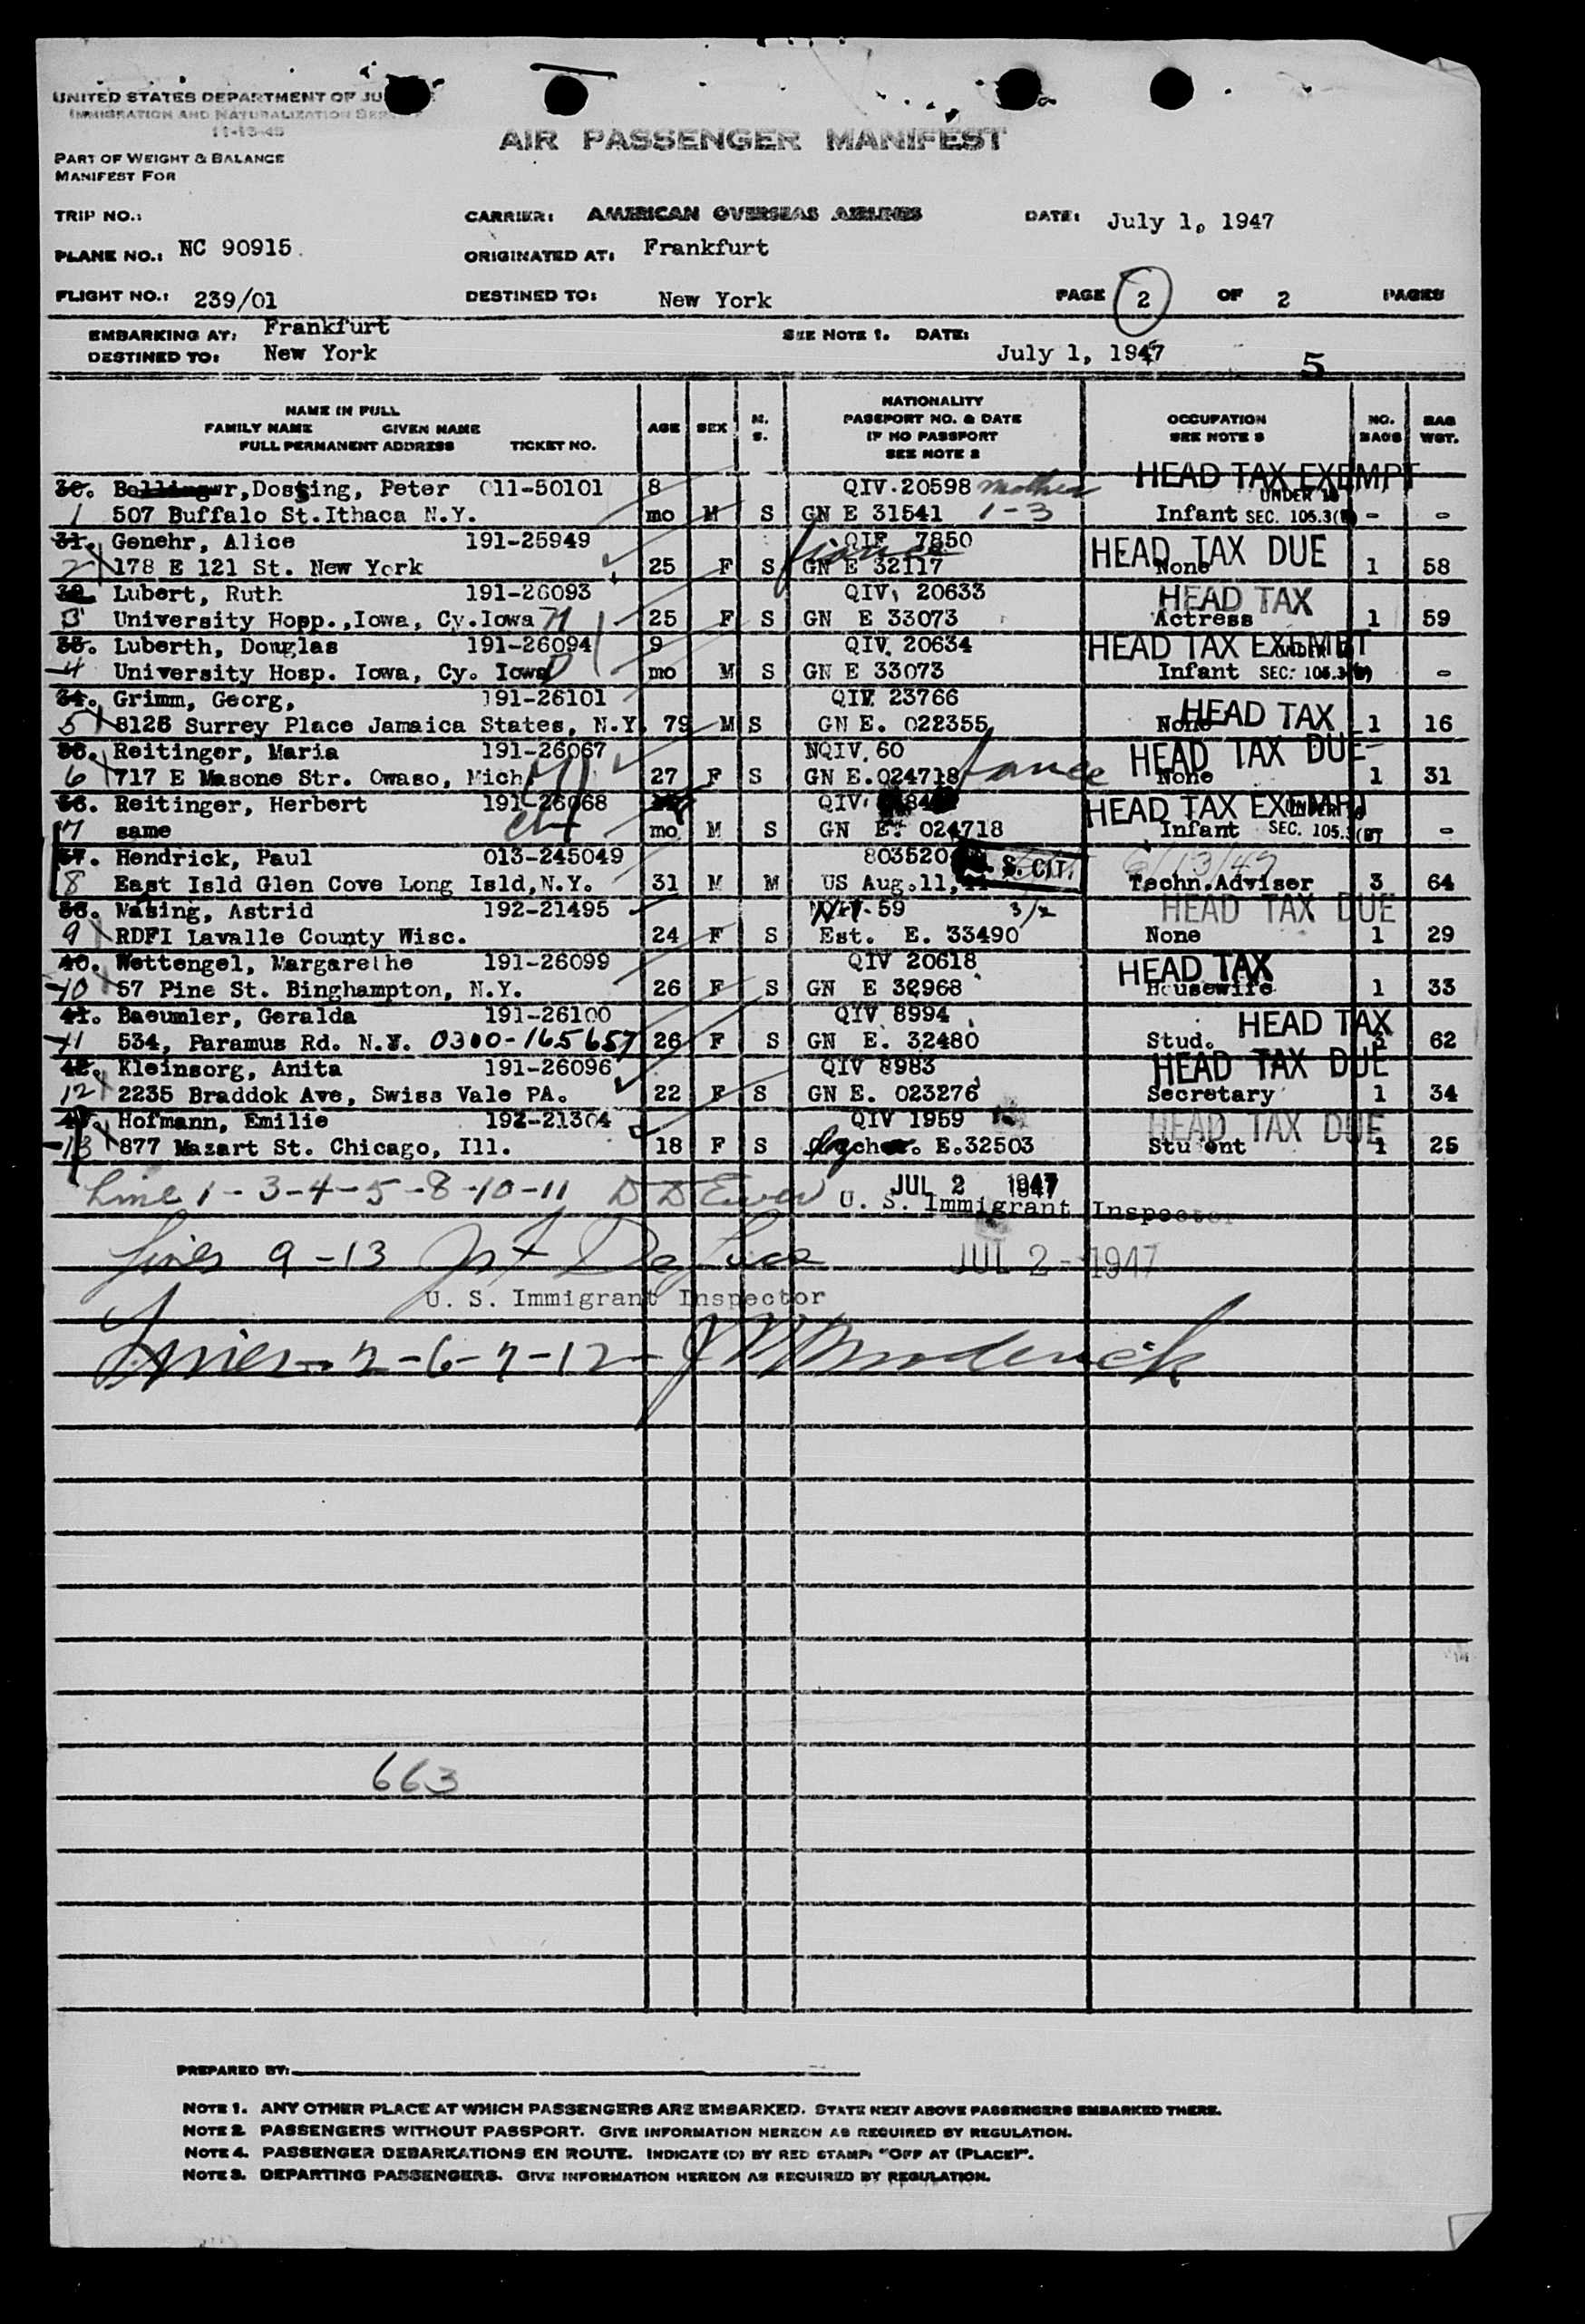 UNITED STATES DEPARTMENT OF JU
IMMIGRATION AND NATURALIZATION SER
11-13-45
AIR PASSENGER MANIFEST
PART OF WEIGHT & BALANCE
MANIFEST FOR
TRIP NO.: CARRIER: AMERICAN OVERSEAS AIRLINES DATE: July 1, 1947
PLANE NO.: NC 90915. ORIGINATED AT: Frankfurt
FLIGHT NO.: 239/01 DESTINED TO: New York PAGE 2 OF 2 PAGES
EMBARKING AT: Frankfurt SEE NOTE 1. DATE:
DESTINED TO: New York July 1, 1947 5
NAME IN FULL
FAMILY NAME GIVEN NAME
FULL PERMANENT ADDRESS TICKET NO.
AGE SEX M. S.
NATIONALITY
PASSPORT NO. & DATE
IF NO PASSPORT
SEE NOTE 2
OCCUPATION
SEE NOTE 3
NO. BAGS
BAG WGT.
HEAD TAX EXEMPT
30. r, Dossing, Peter 011-50101 8 QIV. 20598 mother UNDER 16
1 507 Buffalo St. Ithaca N.Y. mo M S GN E 31541 1-3 Infant SEC. 105.3( ) - -
31. Genehr, Alice 191-25949 QIF 7850 HEAD TAX DUE
2 178 E 121 St. New York 25 F S GN E 32117 fiance None 1 58
32. Lubert, Ruth 191-26093 QIV, 20633 HEAD TAX
3 University Hopp., Iowa, Cy. Iowa 25 F S GN E 33073 Actress 1 59
33. Luberth, Douglas 191-26094 9 QIV. 20634 HEAD TAX EXEMPT UNDER
4 University Hosp. Iowa, Cy. Iowa mo M S GN E 33073 Infant SEC. 105.3( ) -
34. Grimm, Georg, 191-26101 QIV 23766 HEAD TAX
5 8128 Surrey Place Jamaica States, N.Y. 79 M S GN E. 022355 None 1 16
35. Reitinger, Maria 191-26067 NQIV. 60 HEAD TAX DUE
6 717 E Masone Str. Owaso, Mich 27 F S GN E. 024718 None 1 31
36. Reitinger, Herbert 191-26068 QIV. HEAD TAX EXEMPT
7 same mo M S GN E. 024718 Infant SEC. 105.3( ) -
37. Hendrick, Paul 013-245049 803520 U. S. CIT. 6/13/47
8 East Isld Glen Cove Long Isld, N.Y. 31 M M US Aug. 11, Techn. Adviser 3 64
38. Wasing, Astrid 192-21495 59 3/2 HEAD TAX DUE
9 RDFI Lavalle County Wisc. 24 F S Est. E. 33490 None 1 29
40. Wettengel, Margarethe 191-26099 QIV 20618 HEAD TAX
10 57 Pine St. Binghampton, N.Y. 26 F S GN E 32968 Housewife 1 33
41. Baeumler, Geralda 191-26100 QIV 8994 HEAD TAX
11 534, Paramus Rd. N.Y. 0300-165657 26 F S GN E. 32480 Stud. 62
42. Kleinsorg, Anita 191-26096 QIV 8983 HEAD TAX DUE
12 2235 Braddok Ave, Swiss Vale PA. 22 F S GN E. 023276 Secretary 1 34
Hofmann, Emilie 192-21304 QIV 1959 HEAD TAX DUE
13 877 Mazart St. Chicago, Ill. 18 F S E.32503 Student 1 25
Line 1-3-4-5-8-10-11 JUL 2 1947
U. S. Immigrant Inspector
Lines 9-13 JUL 2 - 1947
U. S. Immigrant Inspector
Lines - 2-6-7-12-
663
PREPARED BY:
NOTE 1. ANY OTHER PLACE AT WHICH PASSENGERS ARE EMBARKED. STATE NEXT ABOVE PASSENGERS EMBARKED THERE.
NOTE 2. PASSENGERS WITHOUT PASSPORT. GIVE INFORMATION HEREON AS REQUIRED BY REGULATION.
NOTE 4. PASSENGER DEBARKATIONS EN ROUTE. INDICATE (D) BY RED STAMP: "OFF AT (PLACE)".
NOTE 3. DEPARTING PASSENGERS. GIVE INFORMATION HEREON AS REQUIRED BY REGULATION.